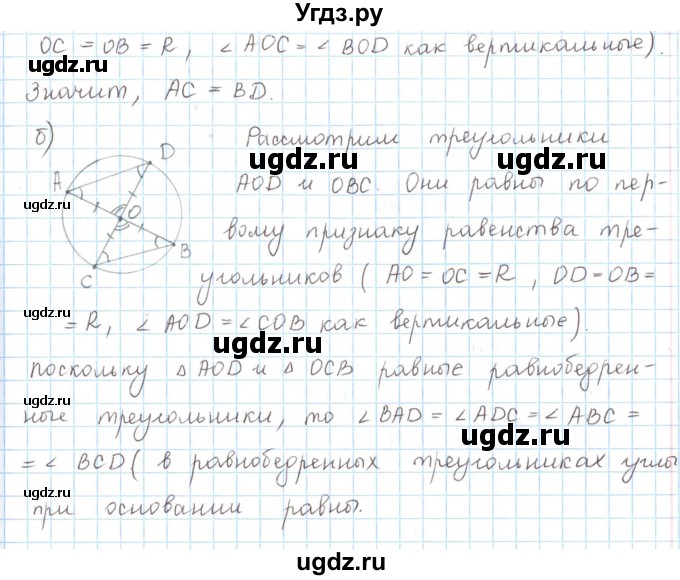 Угдз.ру
OC = OB = R, ∠ AOC = ∠ BOD как вертикальные).
Значит, AC = BD.
б) Рассмотрим треугольники
AOD и OBC. Они равны по пер-
вому признаку равенства тре-
угольников ( AO = OC = R , OD = OB =
= R, ∠ AOD = ∠ COB как вертикальные).
поскольку △ AOD и △ OCB равные равнобедрен-
ные треугольники, то ∠ BAD = ∠ ADC = ∠ ABC =
= ∠ BCD ( в равнобедренных треугольниках углы
при основании равны.
A
D
O
B
C
ugdz.ru
ugdz.ru
ugdz.ru
ugdz.ru
ugdz.ru
ugdz.ru
ugdz.ru
ugdz.ru
ugdz.ru
ugdz.ru
ugdz.ru
ugdz.ru
ugdz.ru
ugdz.ru